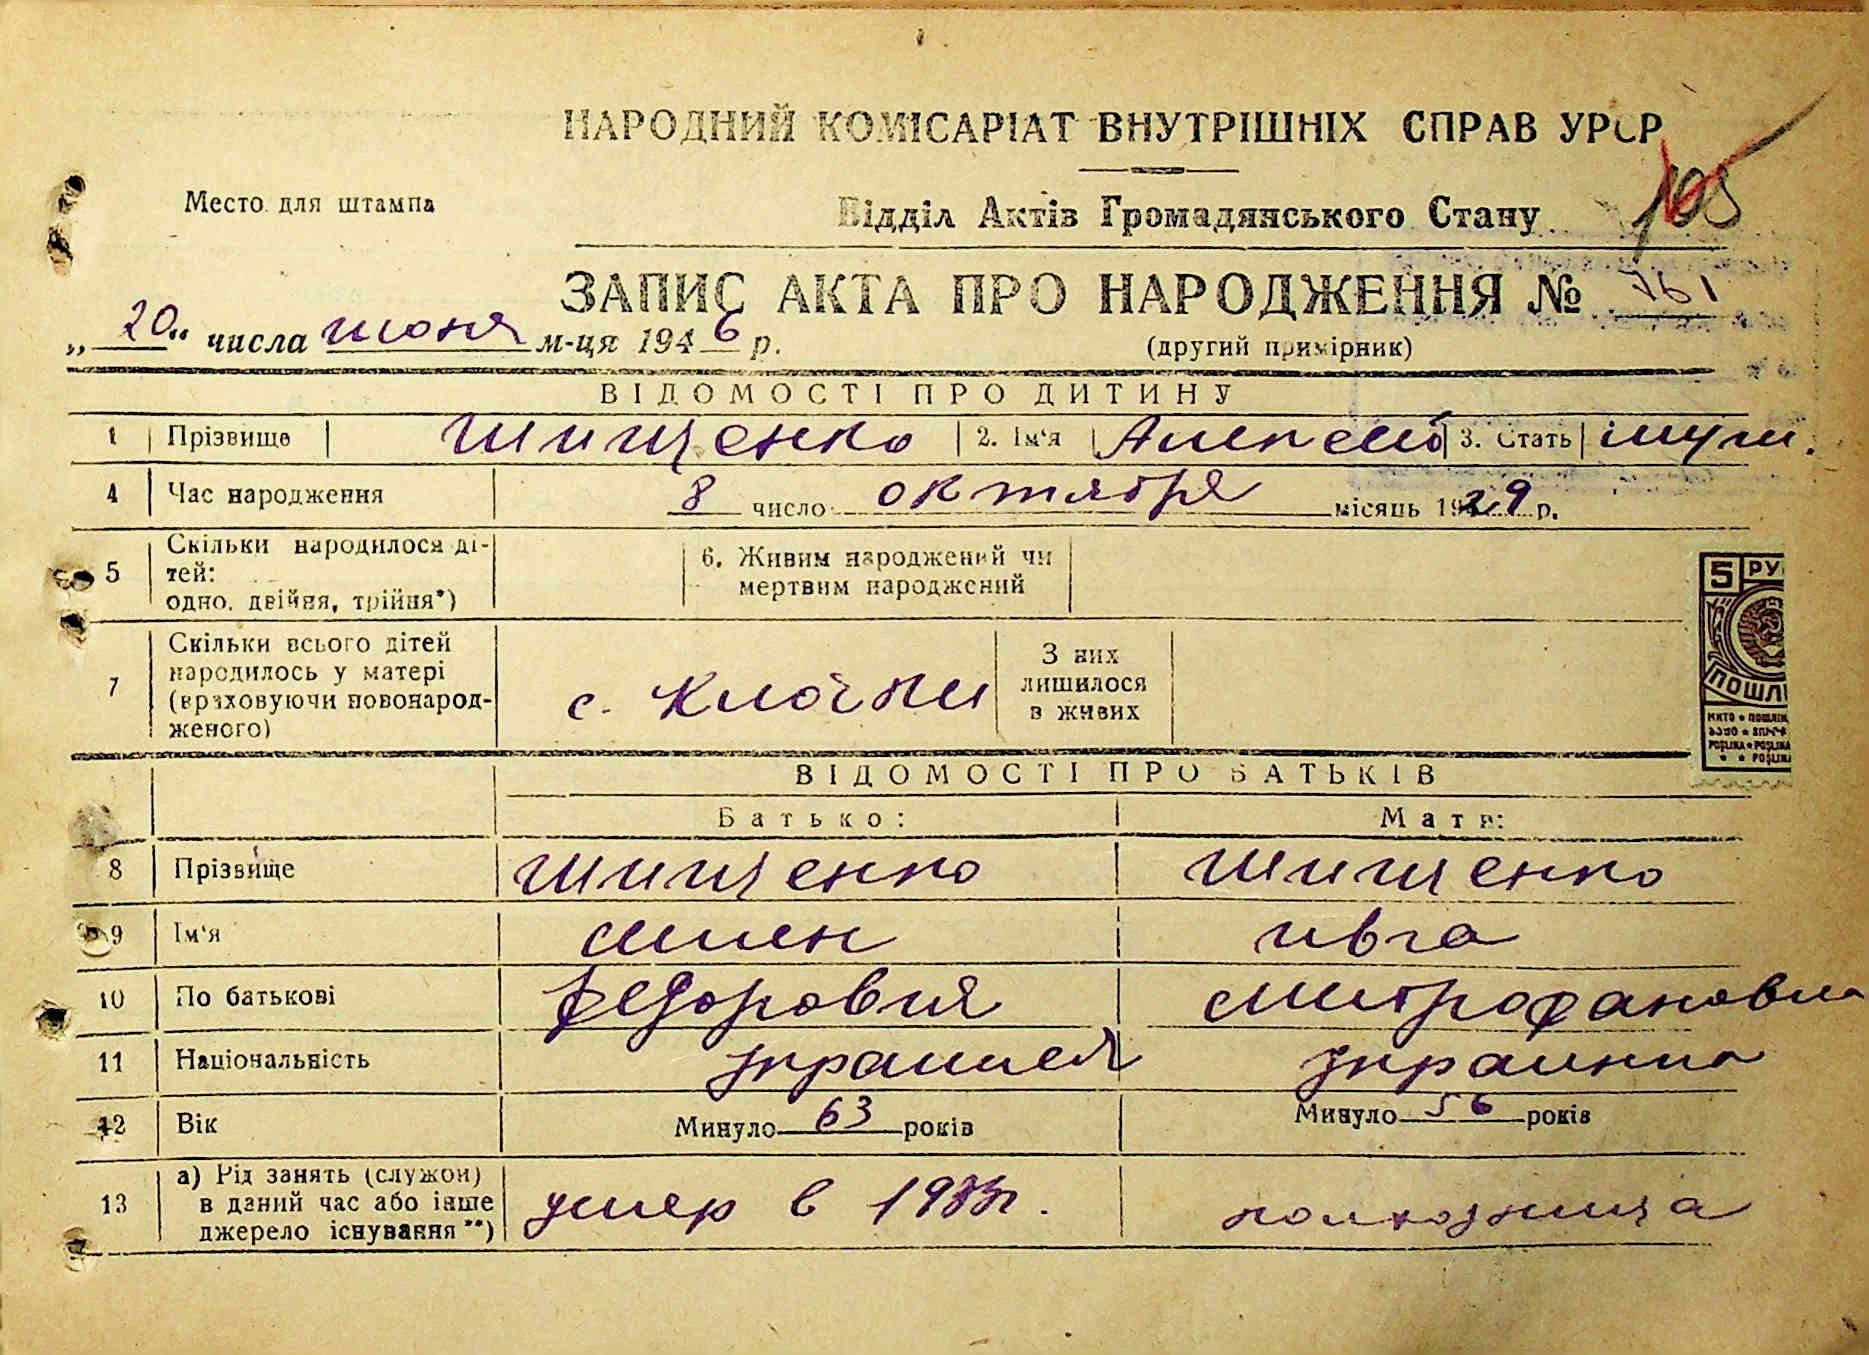 НАРОДНИЙ КОМІСАРІАТ ВНУТРІШНІХ СПРАВ УРСР
105
Место для штампа
Відділ Актів Громадянського Стану
ЗАПИС АКТА ПРО НАРОДЖЕННЯ № 761
„20“ числа июня м-ця 1946 р.
(другий примірник)
ВІДОМОСТІ ПРО ДИТИНУ
1 Прізвище Шищенко 2. Ім'я Алексей 3. Стать муж.
4 Час народження 8 число октября місяць 1929 р.
5 Скільки народилося ді-
тей:
одно, двійня, трійня*)
6. Живим народжений чи
мертвим народжений
7 Скільки всього дітей
народилось у матері
(враховуючи новонарод-
женого)
с. Клочки
З них
лишилося
в живих
5 РУ
ПОШЛ
ВІДОМОСТІ ПРО БАТЬКІВ
Батько: Мати:
8 Прізвище Шищенко Шищенко
9 Ім'я Семен Ивга
10 По батькові Федорович Митрофановна
11 Національність украинец украинка
12 Вік Минуло 63 років Минуло 56 років
13 а) Рід занять (служби)
в даний час або інше
джерело існування**)
умер в 1933г. колхозница